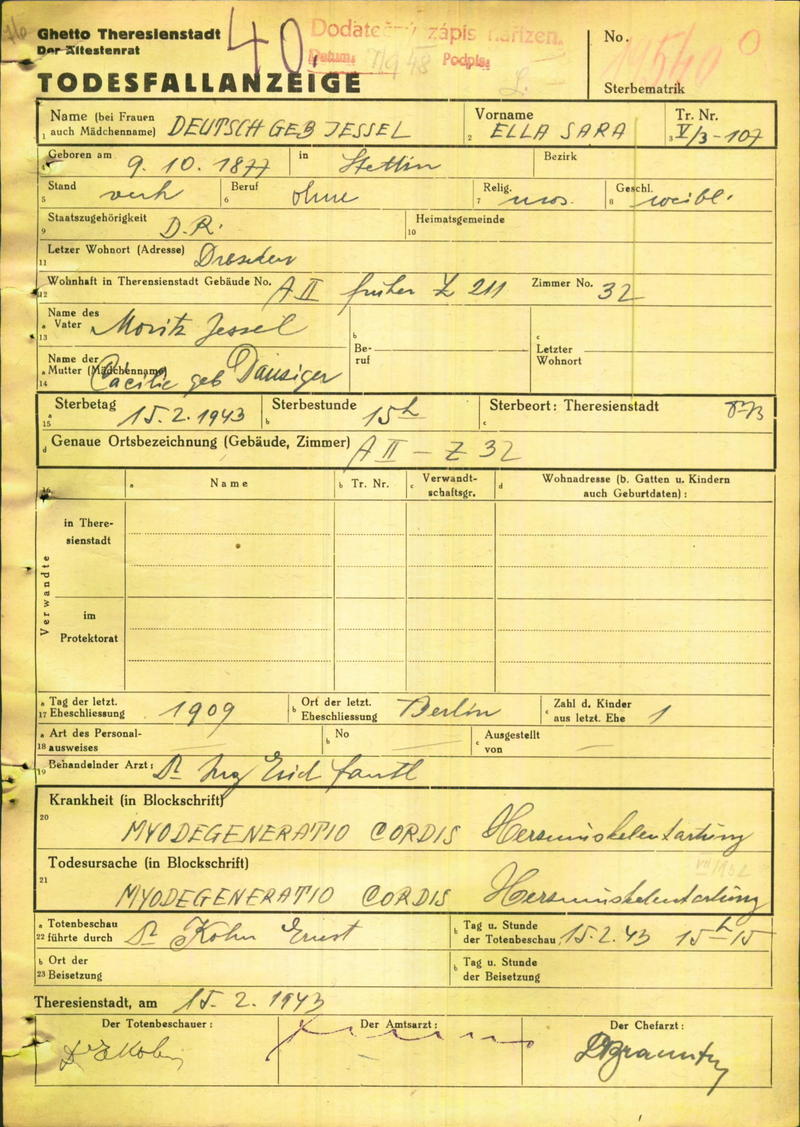 Ghetto Theresienstadt
Der Ältestenrat
40.
Dodatečný zápis nařízen.
Datum: 7/9 48 Podpis:
No.
19540
Sterbematrik
TODESFALLANZEIGE
Name (bei Frauen auch Mädchenname) DEUTSCH GEB JESSEL
1
Vorname
2 ELLA SARA
Tr. Nr.
3 V/3-107
Geboren am 9. 10. 1877 in Stettin Bezirk
Stand verh Beruf ohne Relig. mos. Geschl. weibl.
5 6 7 8
Staatszugehörigkeit D.R. Heimatsgemeinde
9 10
Letzer Wohnort (Adresse) Dresden
11
12 Wohnhaft in Therensienstadt Gebäude No. A II früher L 211 Zimmer No. 32
Name des
a Vater Moritz Jessel
13
b Be-
ruf
c Letzter
Wohnort
Name der
a Mutter (Mädchenname) Cäcilie geb Danziger
14
a Sterbetag 15.2.1943 b Sterbestunde 15h c Sterbeort: Theresienstadt
15
d Genaue Ortsbezeichnung (Gebäude, Zimmer) A II – Z 32
16 a Name b Tr. Nr. c Verwandt-
schaftsgr. d Wohnadresse (b. Gatten u. Kindern
auch Geburtdaten):
Verwandte
in There-
sienstadt
im
Protektorat
a Tag der letzt.
17 Eheschliessung 1909
b Ort der letzt.
Eheschliessung Berlin
c Zahl d. Kinder
aus letzt. Ehe 1
a Art des Personal-
18 ausweises
b No
c Ausgestellt
von
19 Behandelnder Arzt: Dr Erich
Krankheit (in Blockschrift)
20
MYODEGENERATIO CORDIS Hersmuskelentartung
Todesursache (in Blockschrift)
21
MYODEGENERATIO CORDIS Hersmuskelentartung
a Totenbeschau
22 führte durch Dr Kohn Ernst
b Tag u. Stunde
der Totenbeschau 15.2.43 15h 15
b Ort der
23 Beisetzung
b Tag u. Stunde
der Beisetzung
Theresienstadt, am 15. 2. 1943
Der Totenbeschauer: Der Amtsarzt: Der Chefarzt:
Dr E Kohn